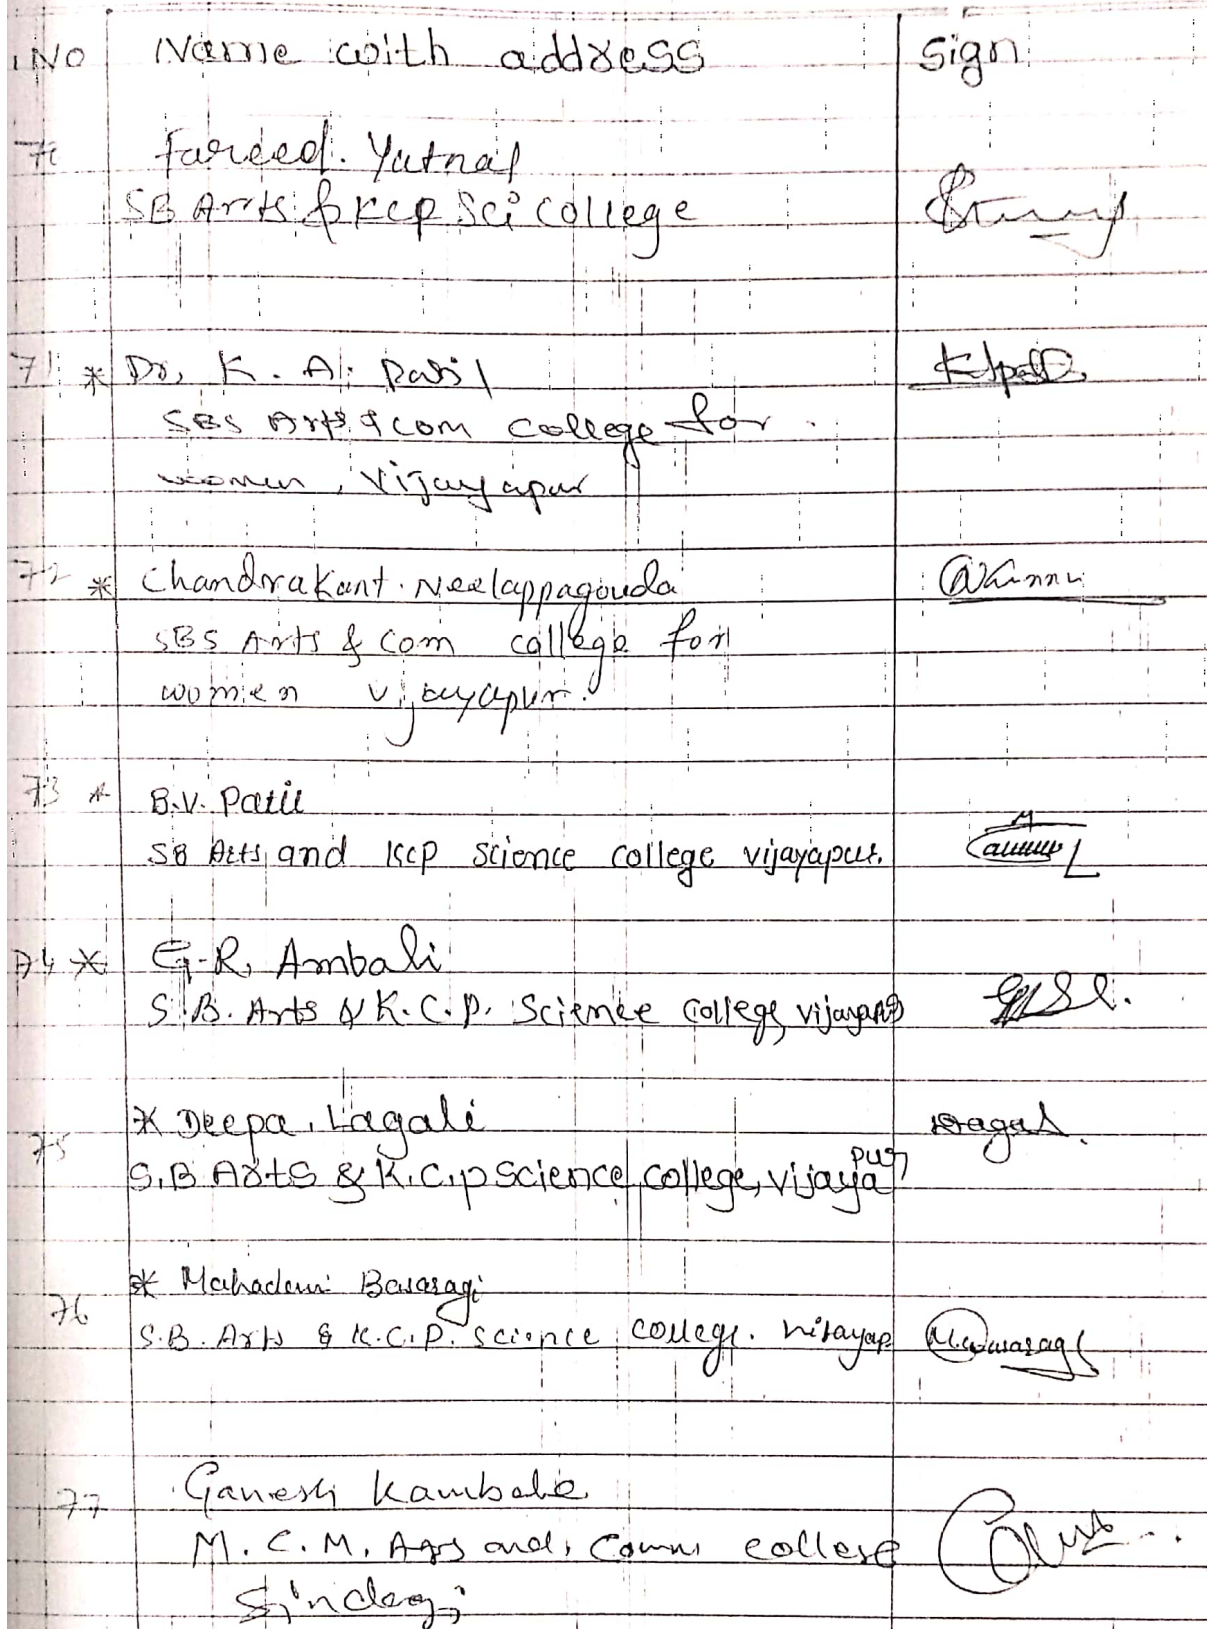 NO Name with address Sign
70 Fareed. Yatnal
SB Arts & KCP Sci College
71 * Dr, K. A. Patil
SBS Arts & Com College for
women, Vijayapur
72 * Chandrakant. Neelappagouda
SBS Arts & Com college for
women vijayapur.
73 * B.V. Patil
SB Arts and KCP Science college vijayapur.
74 * G.R. Ambali
S.B. Arts & K.C.P. Science College, vijayapur
* Deepa. Lagali
75
S.B Arts & K.C.P Science college, vijayapur
* Mahadevi Basaragi
76
S.B. Arts & K.C.P. Science college. vijayap
77 Ganesh Kambale
M.C.M. Arts and, Comm college
Sindagi